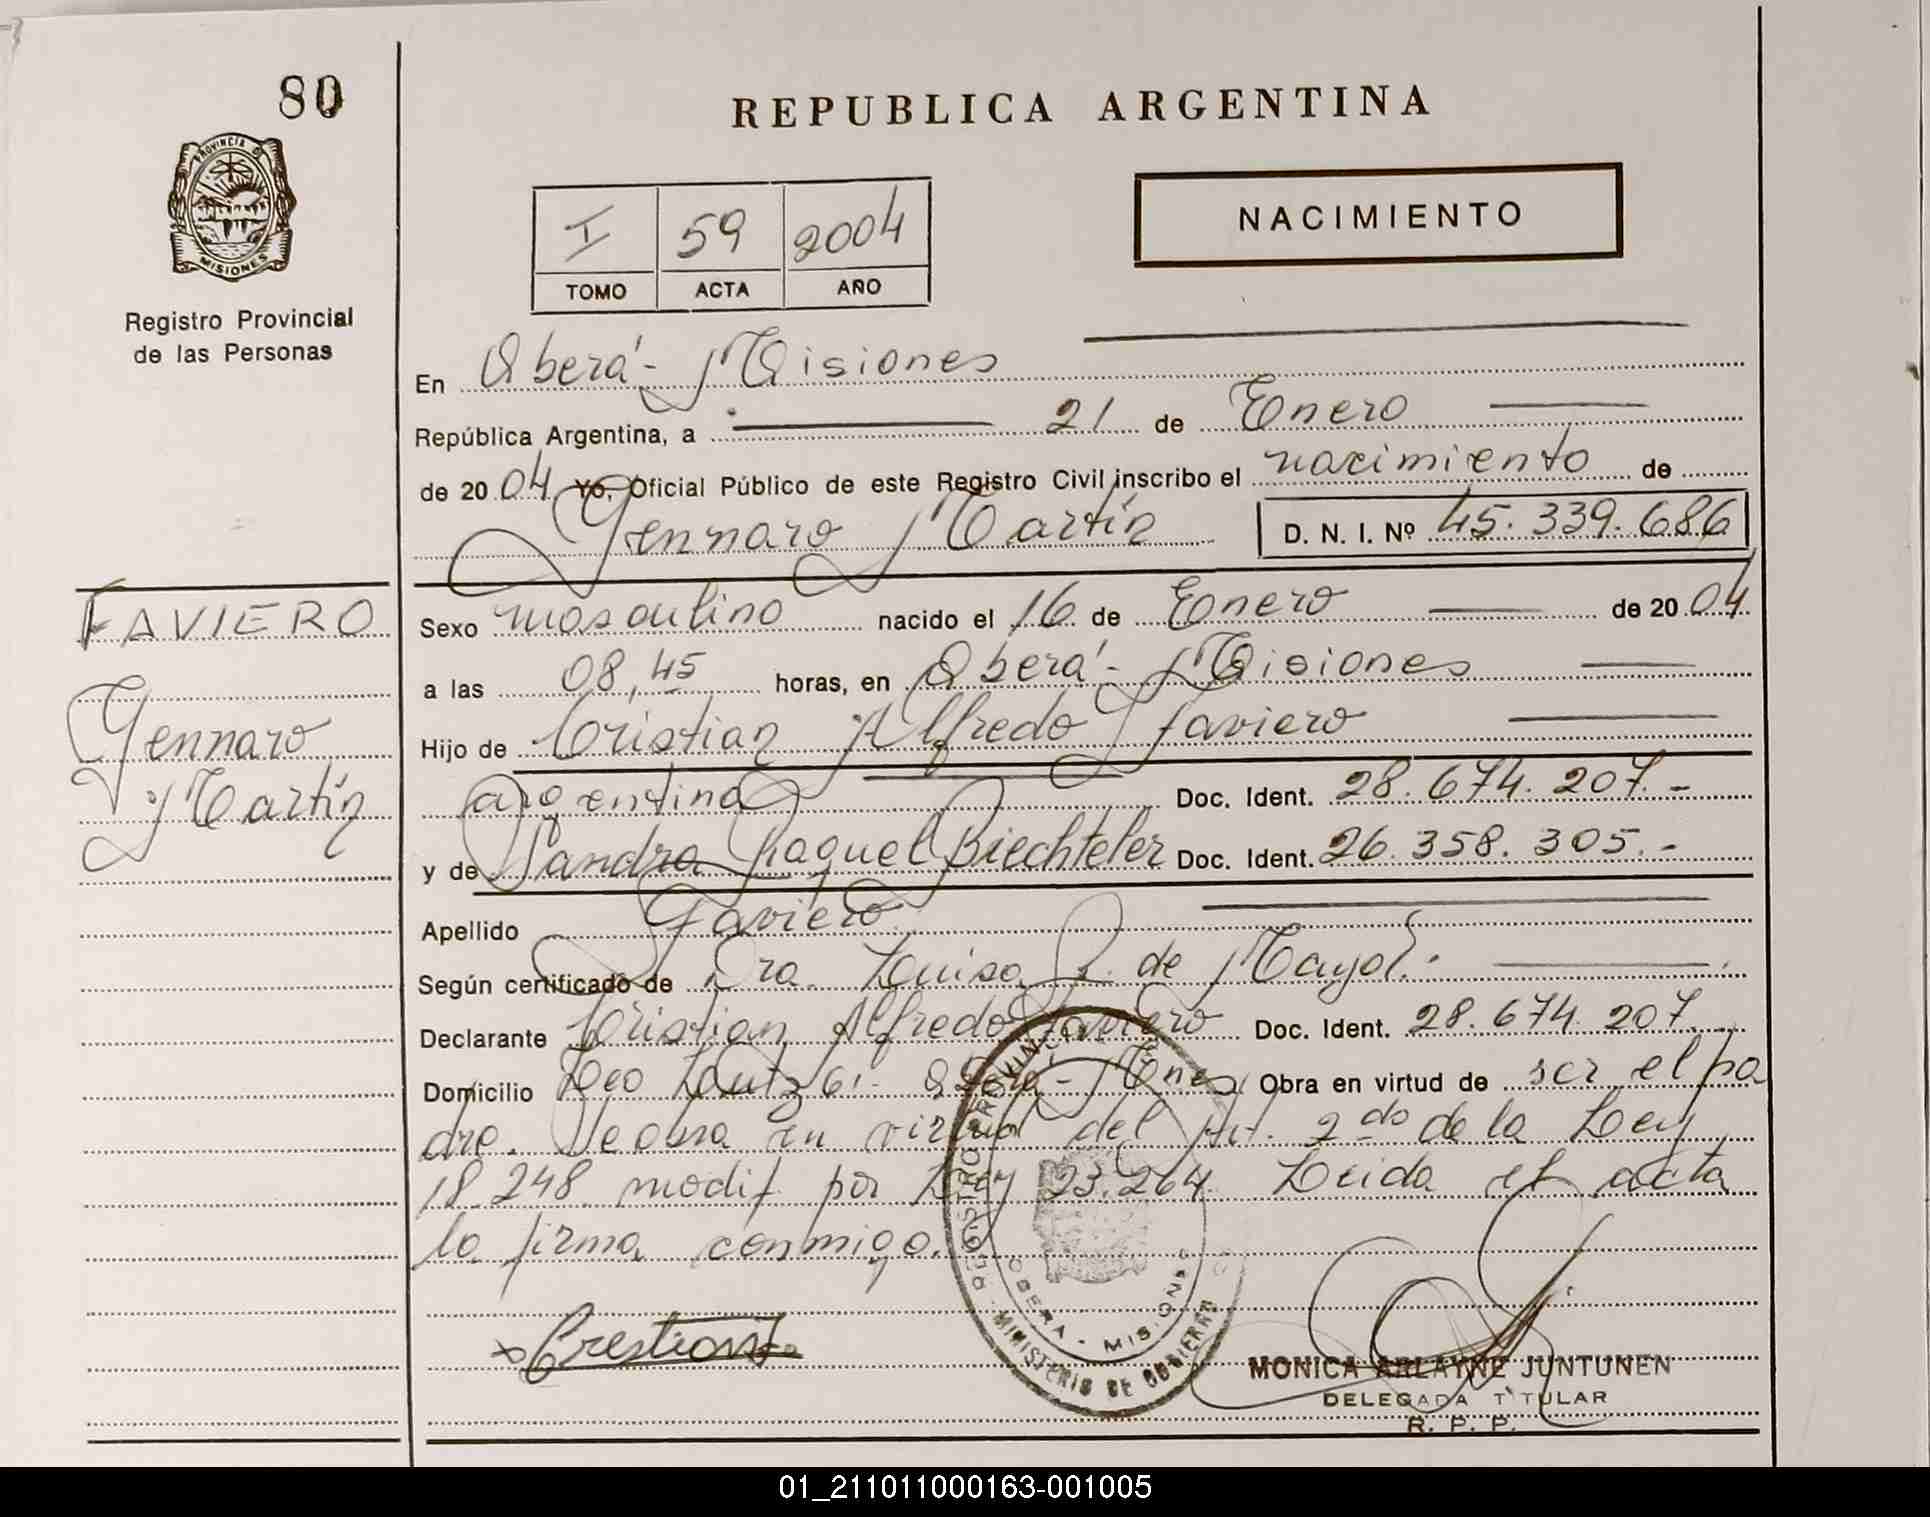 80
PROVINCIA DE
MISIONES
Registro Provincial
de las Personas
REPUBLICA ARGENTINA
I 59 2004
TOMO ACTA AÑO
NACIMIENTO
En Oberá - Misiones
República Argentina, a 21 de Enero
de 2004 Yo, Oficial Público de este Registro Civil inscribo el nacimiento de
Gennaro Martín D. N. I. Nº 45.339.686
FAVIERO
Gennaro
Martín
Sexo masculino nacido el 16 de Enero de 2004
a las 08,45 horas, en Oberá - Misiones
Hijo de Cristian Alfredo Faviero
argentina Doc. Ident. 28.674.207.-
y de Sandra Raquel Biechteler Doc. Ident. 26.358.305.-
Apellido Faviero
Según certificado de Dra. Luisa de Mayol.
Declarante Cristian Alfredo Faviero Doc. Ident. 28.674.207.
Domicilio Leo Lutz 61- Oberá - Mnes Obra en virtud de ser el pa
dre. Se obra en virtud del Art. 2do de la Ley
18.248 modif por Ley 23.264. Leida el acta
la firma conmigo.
REGISTRO PROVINCIAL
MINISTERIO DE GOBIERNO
OBERA - MISIONES
MONICA ARLAYNE JUNTUNEN
DELEGADA TITULAR
R. P. P.
01_211011000163-001005